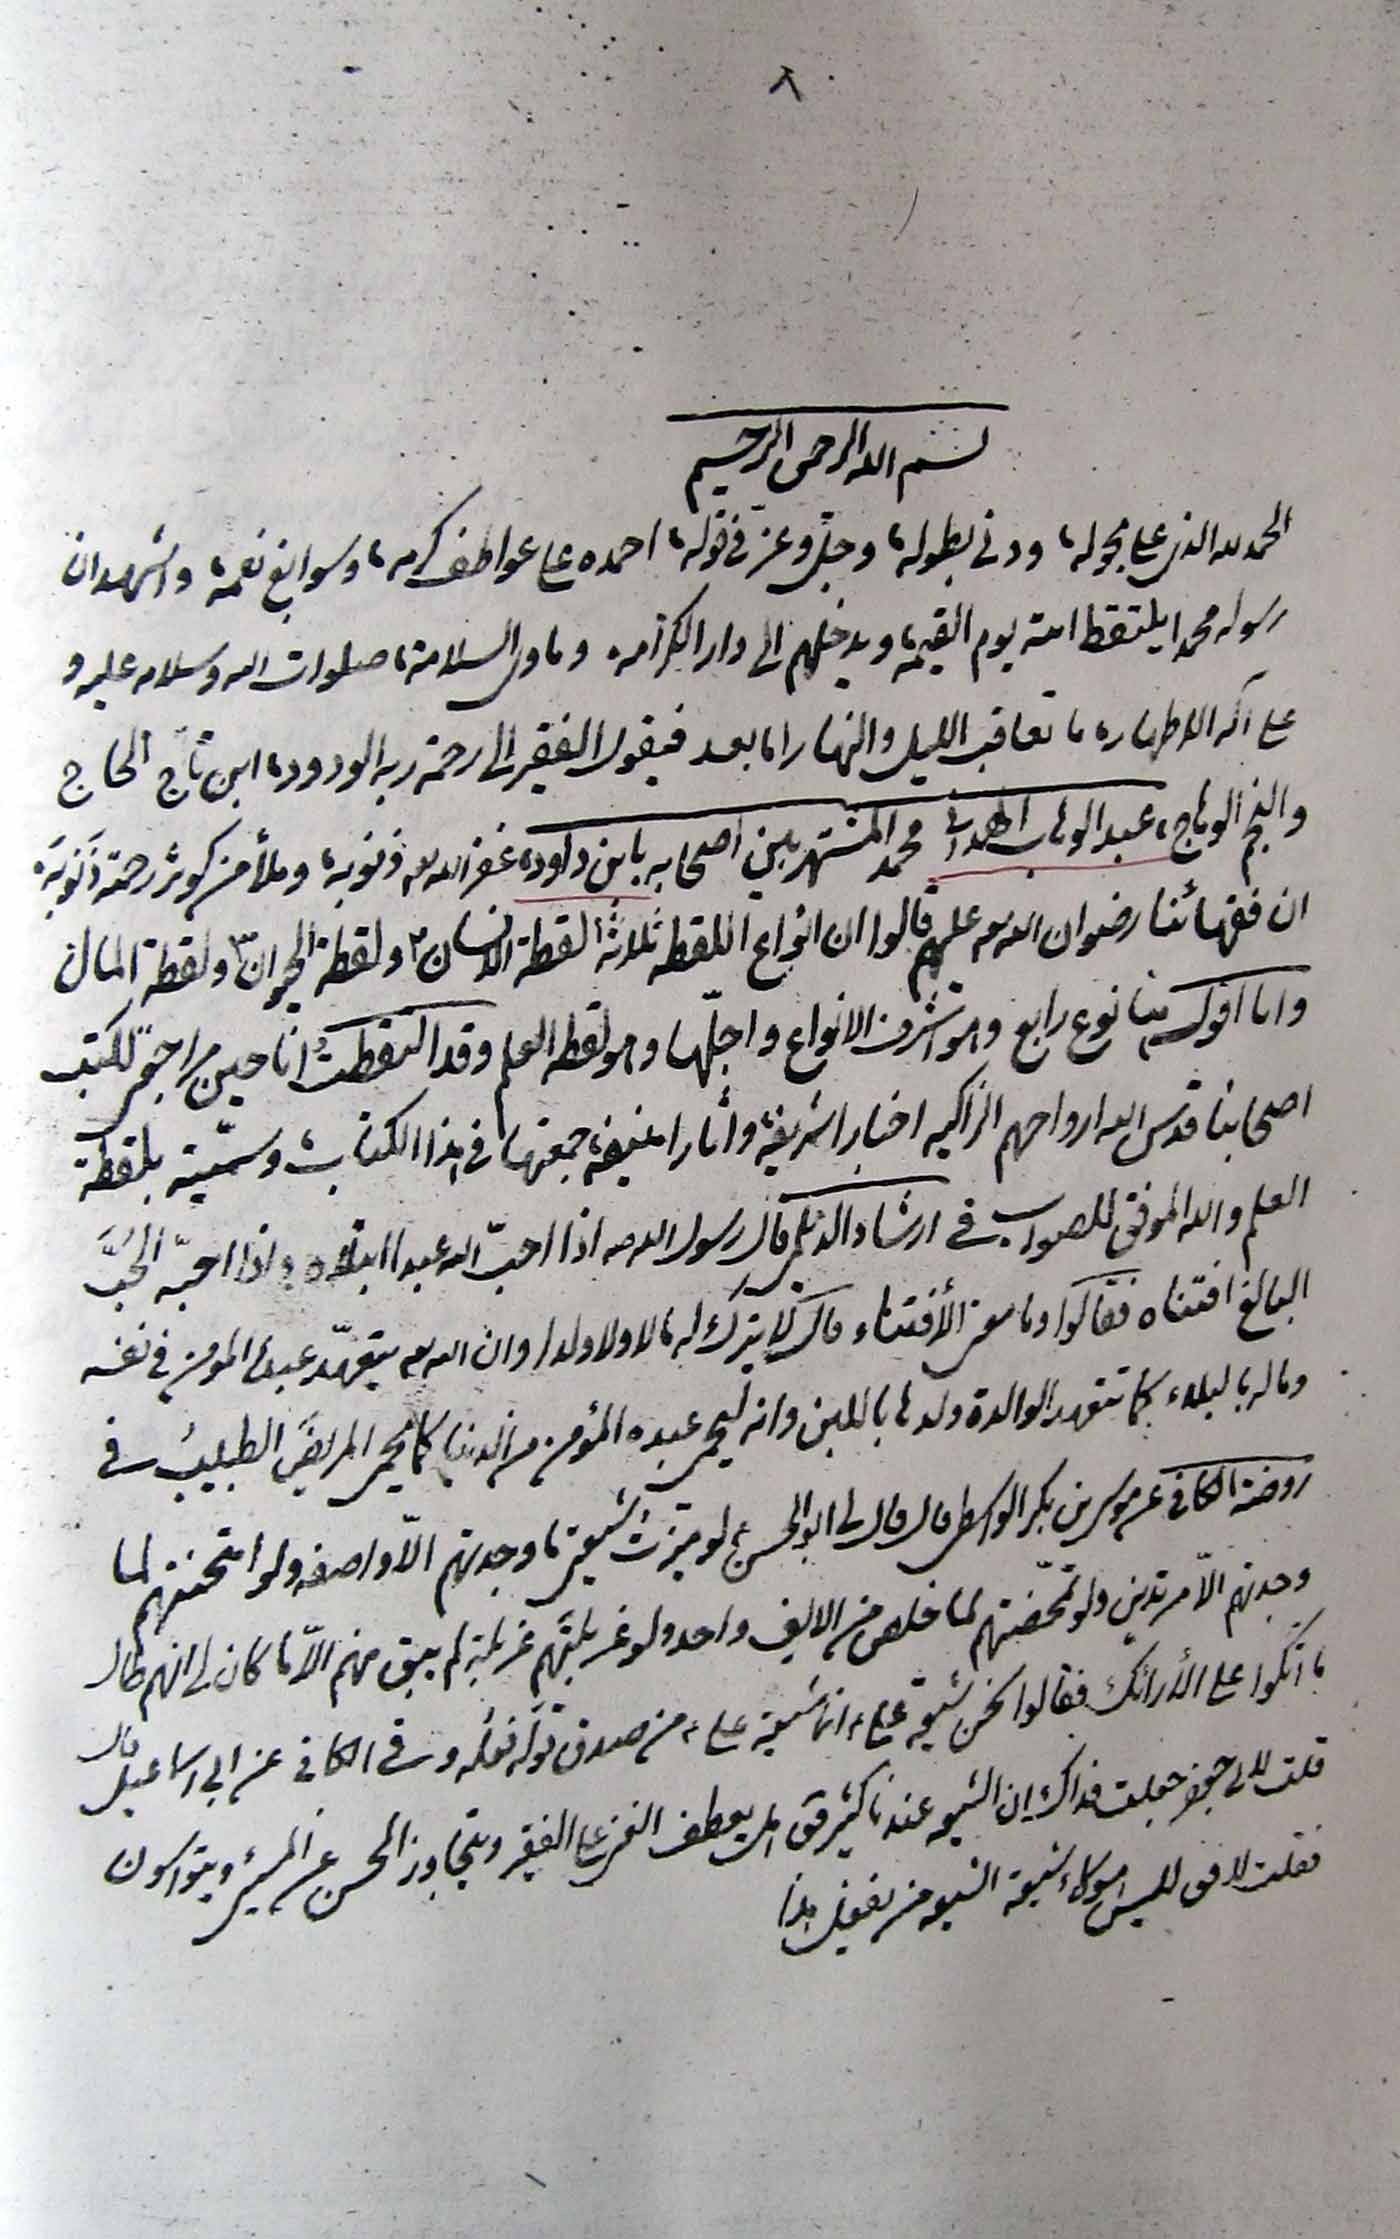 ٨
بسم الله الرحمن الرحیم
الحمد لله الذی علی بحوله، ودنی بطوله، وجلّ وعزّ فی قوله، احمده علی عواطف کرمه، وسوابغ نعمه، واشهد ان
رسوله محمدا یلتقط امته یوم القیمه، ویدخلهم الی دار الکرامه، وماوی السلامة، صلوات الله وسلامه علیه و
علی آله الاطهار، ما تعاقب اللیل والنهار اما بعد فیقول الفقیر الی رحمة ربه الودود، ابن تاج الحاج
والنجم الوهاج، عبد الوهاب الهمدانی محمد المشتهر بین اصحابه بابن داود، غفر الله له ذنوبه، وملأ من کوثر رحمة ذَنوبَه،
ان فقهائنا رضوان الله علیهم قالوا ان انواع اللقطه ثلاثة ١ لقطة الانسان ٢ ولقطة الحیوان ٣ ولقطة المال
واما اقول هنا نوع رابع وهو اشرف الانواع واجلّها وهو لقطه العلم وقد التقطتُ انا حین مراجعتی للکتب
اصحابنا قدس الله ارواحهم الزاکیه اخبارا شریفة، وآثارا منیفة، جمعتها فی هذا الکتاب، وسمّیته بلقطة
العلم والله الموفق للصواب فی ارشاد الدیلمی قال رسول الله ص اذا احبّ الله عبدا ابتلاه واذا احبّه الحُبَّ
البالغ افتناه فقالوا وما معنی الأفتناء قال لا یترک له مالا ولا ولدا وان الله یتعهّد عبده المؤمن فی نفسه
وماله بالبلاء کما تتعهد الوالدة ولدها باللبن وانه لیحمی عبده المؤمن من الدنیا کما یحمی المریضَ الطبیبُ فی
روضة الکافی عن موسی بن بکر الواسطی قال قال لی ابو الحسن ع لو میّزتُ شیعتی ما وجدتهم الّا واصفه ولو امتحنتهم لما
وجدتهم الّا مرتدین ولو تمحّصتهم لما خلص من الالف واحد ولو غربلتهم غربلة لم یبق منهم الّا ما کان لی انهم طال
ما اتکوا علی الأرائک فقالوا نحن شیعة علی ع انما شیعة علی ع من صدق قولَه فعلُه و فی الکافی عن ابی اسماعیل قال
قلت لابی جعفر جعلت فداک ان الشیعه عندنا کثیر فق هل یعطف الغنی علی الفقیر ویتجاوز المحسن عن المسیئ ویتواسون
فقلت لا فق لیس هولاء شیعة الشیعه من یفعل هذا